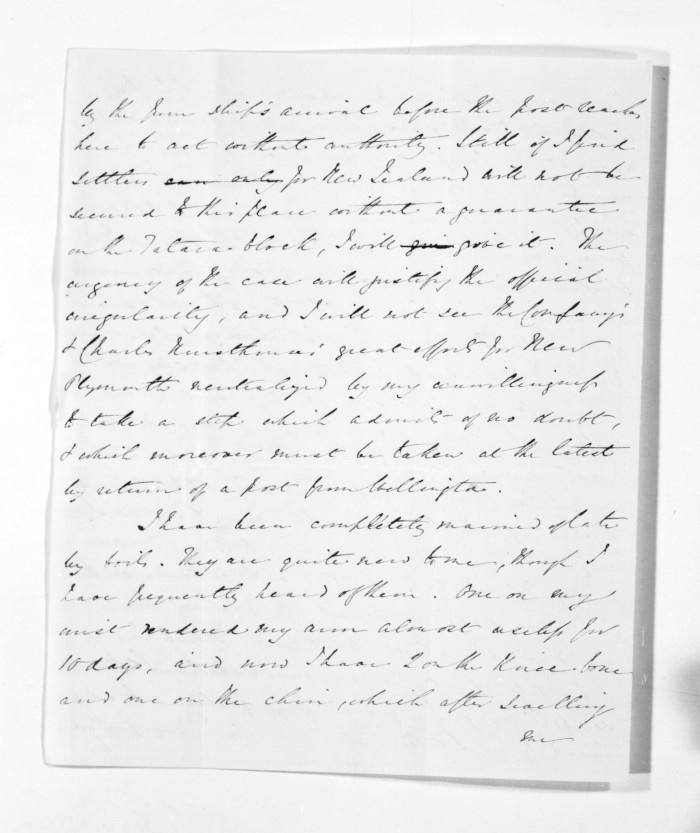 by the firm ship's arrival before the post reaches
here to act without authority. Still if I find
settlers can only for New Zealand will not be
secured to this place without a guarantee
on the Tataraimaka block, I will give it. The
urgency of the case will justify the official
irregularity, and I will not see the Company's
& Charles Hursthouse's great efforts for New
Plymouth neutralized by my unwillingness
to take a step which admits of no doubt,
& which moreover must be taken at the latest
by return of a post from Wellington.
I have been completely maimed of late
by boils. They are quite new to me, though I
have frequently heard of them. One on my
wrist rendered my arm almost useless for
10 days, and now I have 2 on the knee bone
and one on the chin, which after swelling
me